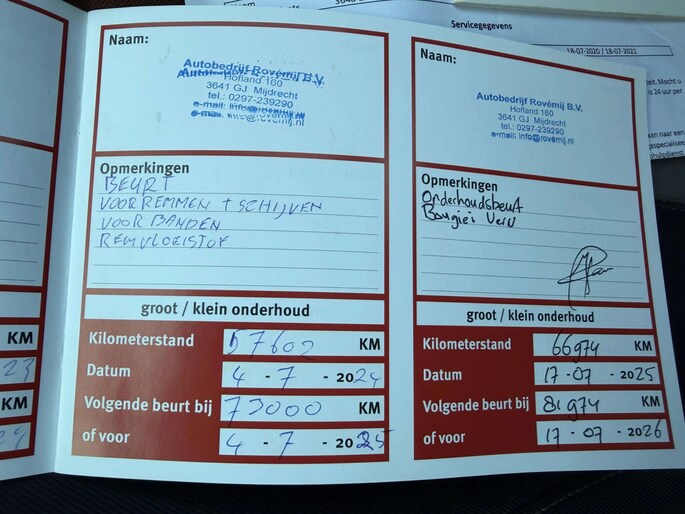 Servicegegevens
18-07-2020 / 18-07-2021
Naam:
Autobedrijf Rovémij B.V.
Hofland 160
3641 GJ Mijdrecht
tel.: 0297-239290
e-mail: info@rovemij.nl
Opmerkingen
BEURT
VOORREMMEN + SCHIJVEN
VOORBANDEN
REMVLOEISTOF
groot / klein onderhoud
Kilometerstand 57602 KM
Datum 4 - 7 - 2024
Volgende beurt bij 73000 KM
of voor 4 - 7 - 2025
Naam:
Autobedrijf Rovémij B.V.
Hofland 160
3641 GJ Mijdrecht
tel.: 0297-239290
e-mail: info@rovémij.nl
Opmerkingen
Onderhoudsbeurt
Bougień Vern
groot / klein onderhoud
Kilometerstand 66974 KM
Datum 17 - 07 - 2025
Volgende beurt bij 81974 KM
of voor 17 - 07 - 2026
KM
23
KM
24